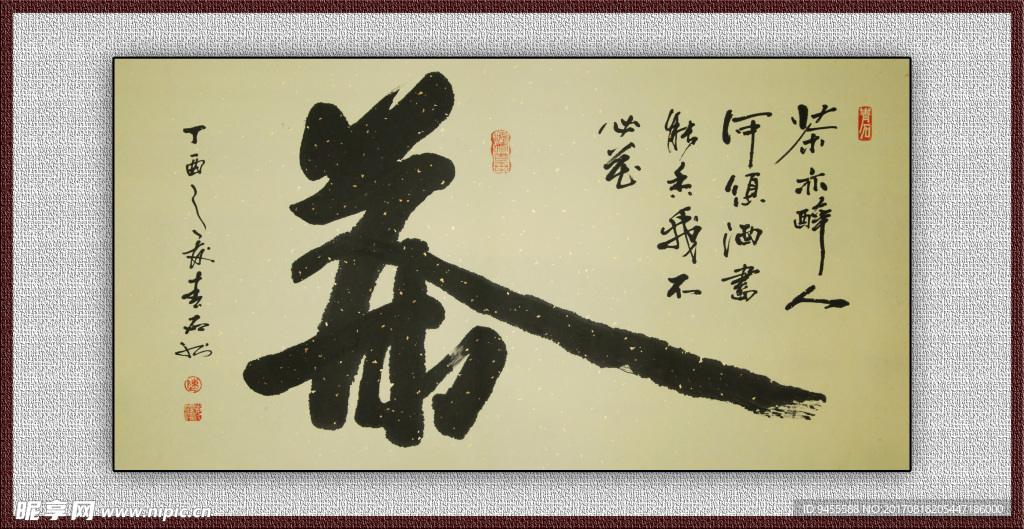 茶亦醉人
何须酒书
能香我不
必花
茶
丁酉之秋青石书
昵享网 www.nipic.cn
ID:9455588 NO:20170816205447186000